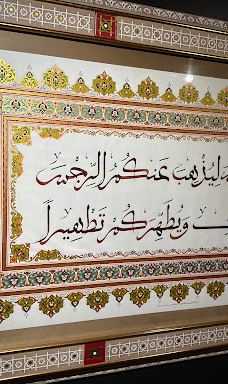 لِيُذْهِبَ عَنكُمُ الرِّجْسَ
وَيُطَهِّرَكُمْ تَطْهِيراً